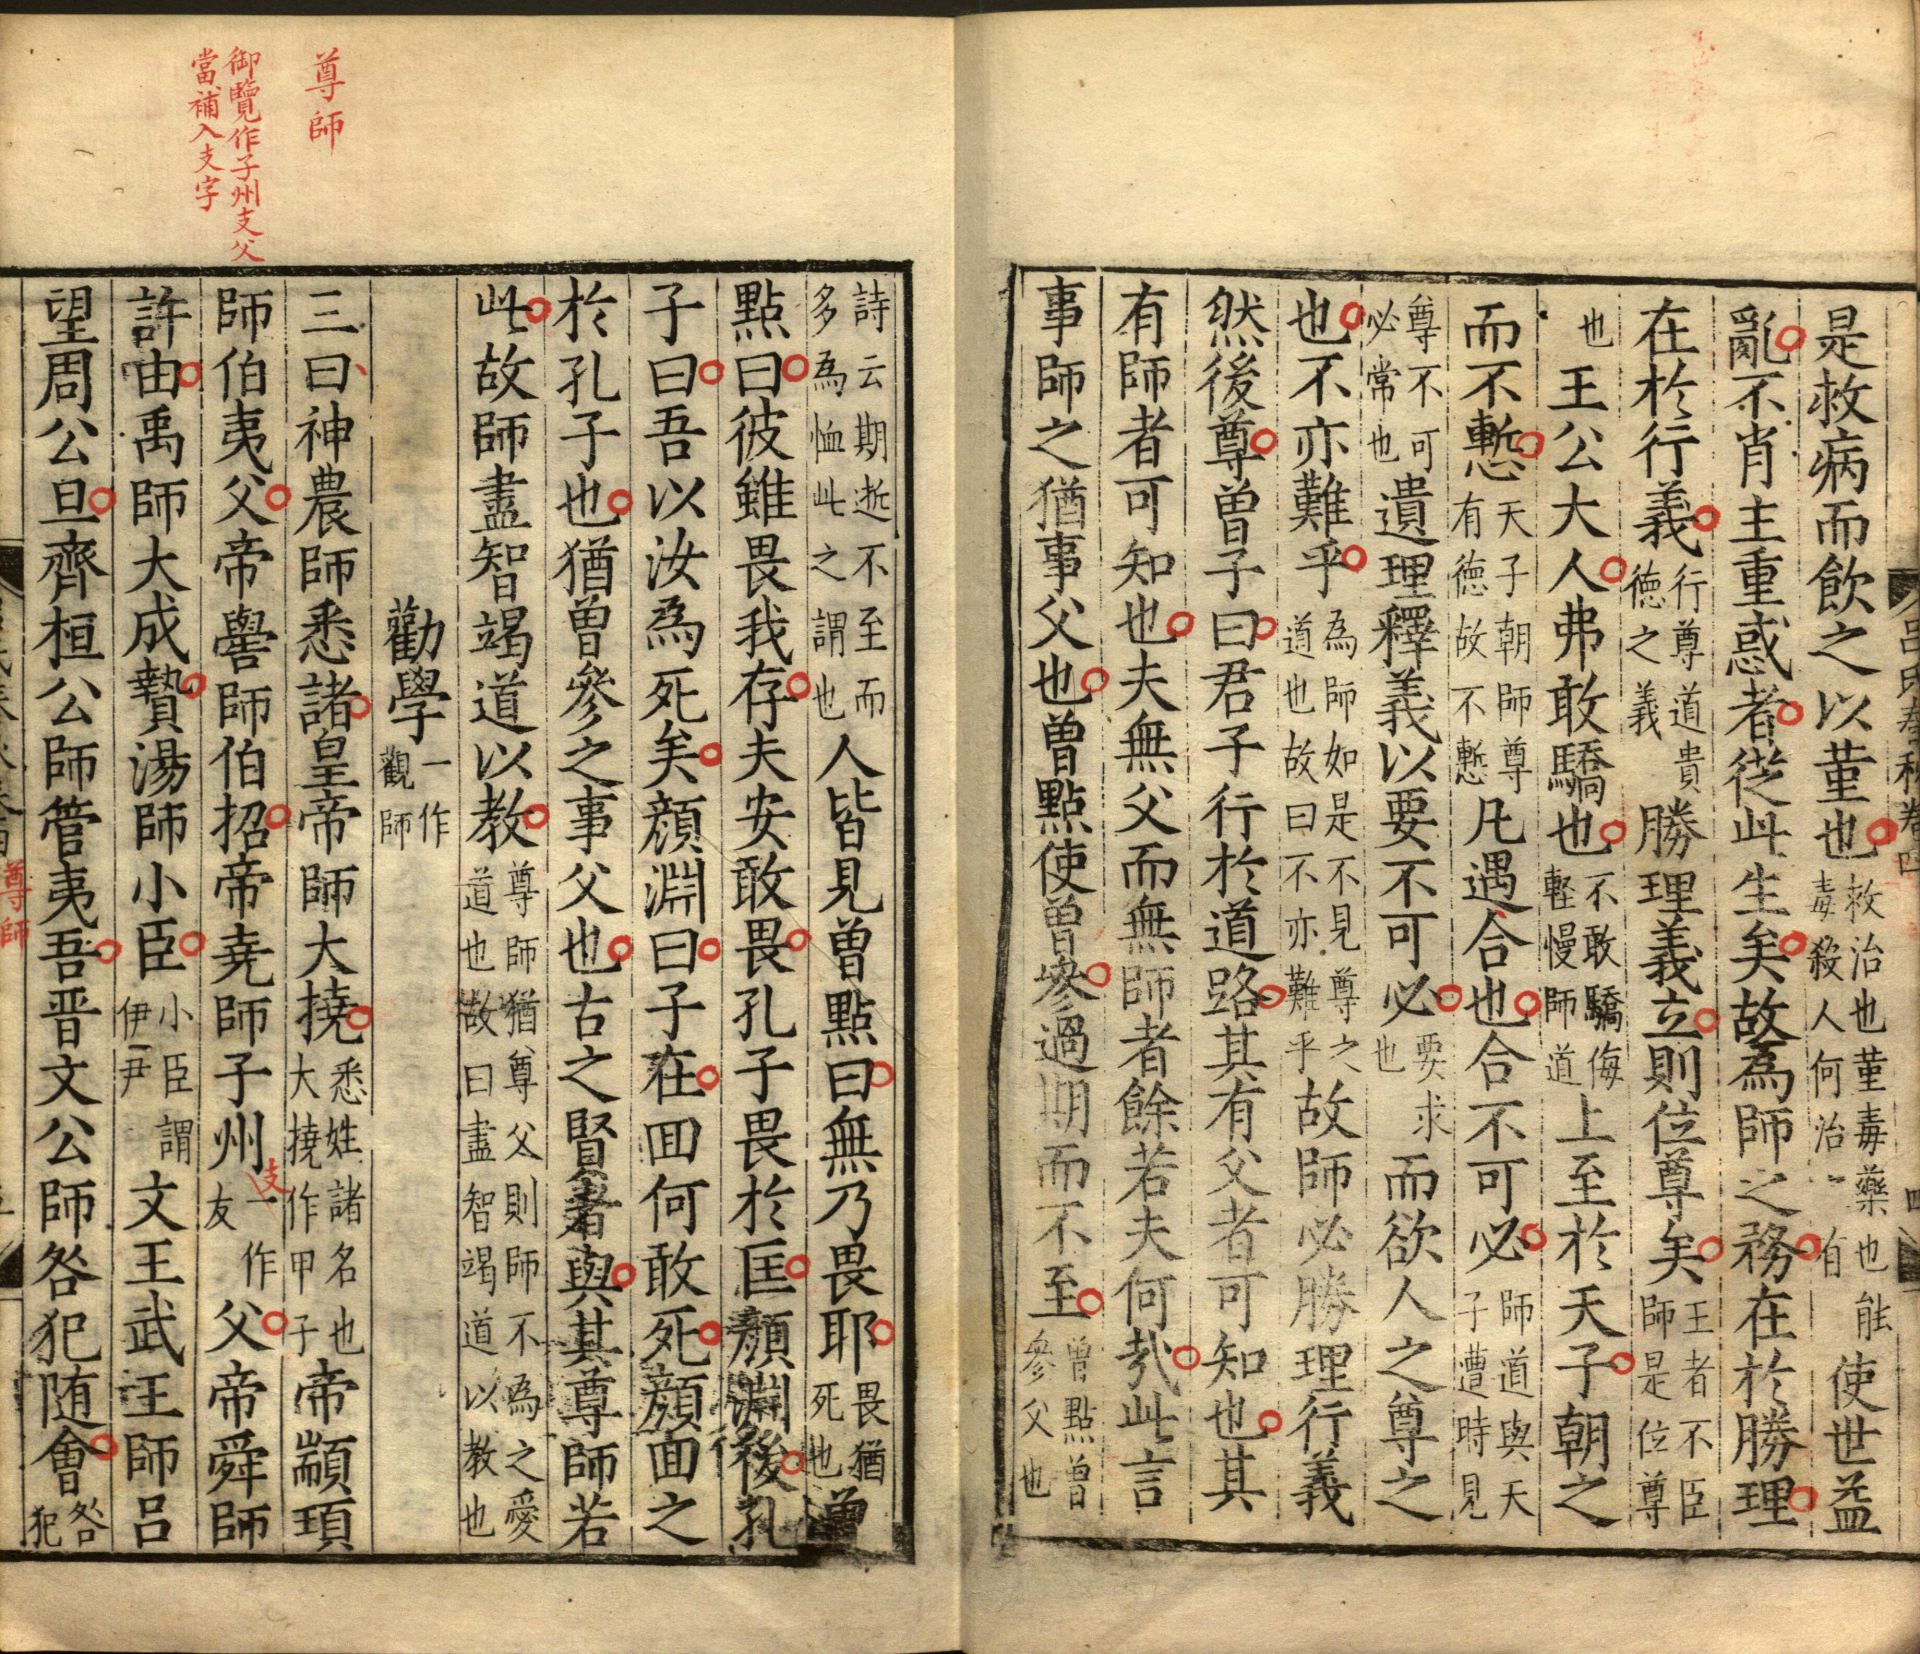 是救病而飲之以菫也救治也菫毒藥也能毒殺人何治一有使世益
亂不肖主重惑者從此生矣故為師之務在於勝理
在於行義行尊道貴德之義勝理義立則位尊矣王者不臣師是位尊
也王公大人弗敢驕也不敢驕侮輕慢師道上至於天子朝之
而不慙天子朝師尊有德故不慙凡遇合也合不可必師道與天子遭時見
尊不可必常也遺理釋義以要不可必要求也而欲人之尊之
也不亦難乎為師如是不見尊之道也故曰不亦難乎故師必勝理行義
然後尊曾子曰君子行於道路其有父者可知也其
有師者可知也夫無父而無師者餘若夫何哉此言
事師之猶事父也曾點使曾參過期而不至曾點曾參父也
呂氏春秋卷四
四
尊師
御覽作子州支父
當補入支字
詩云期逝不至而多為恤此之謂也人皆見曾點曰無乃畏耶畏猶死也曾
點曰彼雖畏我存夫安敢畏孔子畏於匡顏淵後孔
子曰吾以汝為死矣顏淵曰子在回何敢死顏回之
於孔子也猶曾參之事父也古之賢者與其尊師若
此故師盡智竭道以教尊師猶尊父則師不為之愛道也故曰盡智竭道以教也
勸學一作觀師
三曰神農師悉諸皇帝師大撓悉姓諸名也大撓作甲子帝顓頊
師伯夷父帝嚳師伯招帝堯師子州支一作友父帝舜師
許由禹師大成贄湯師小臣小臣謂伊尹文王武王師呂
望周公旦齊桓公師管夷吾晉文公師咎犯隨會咎犯
尊師